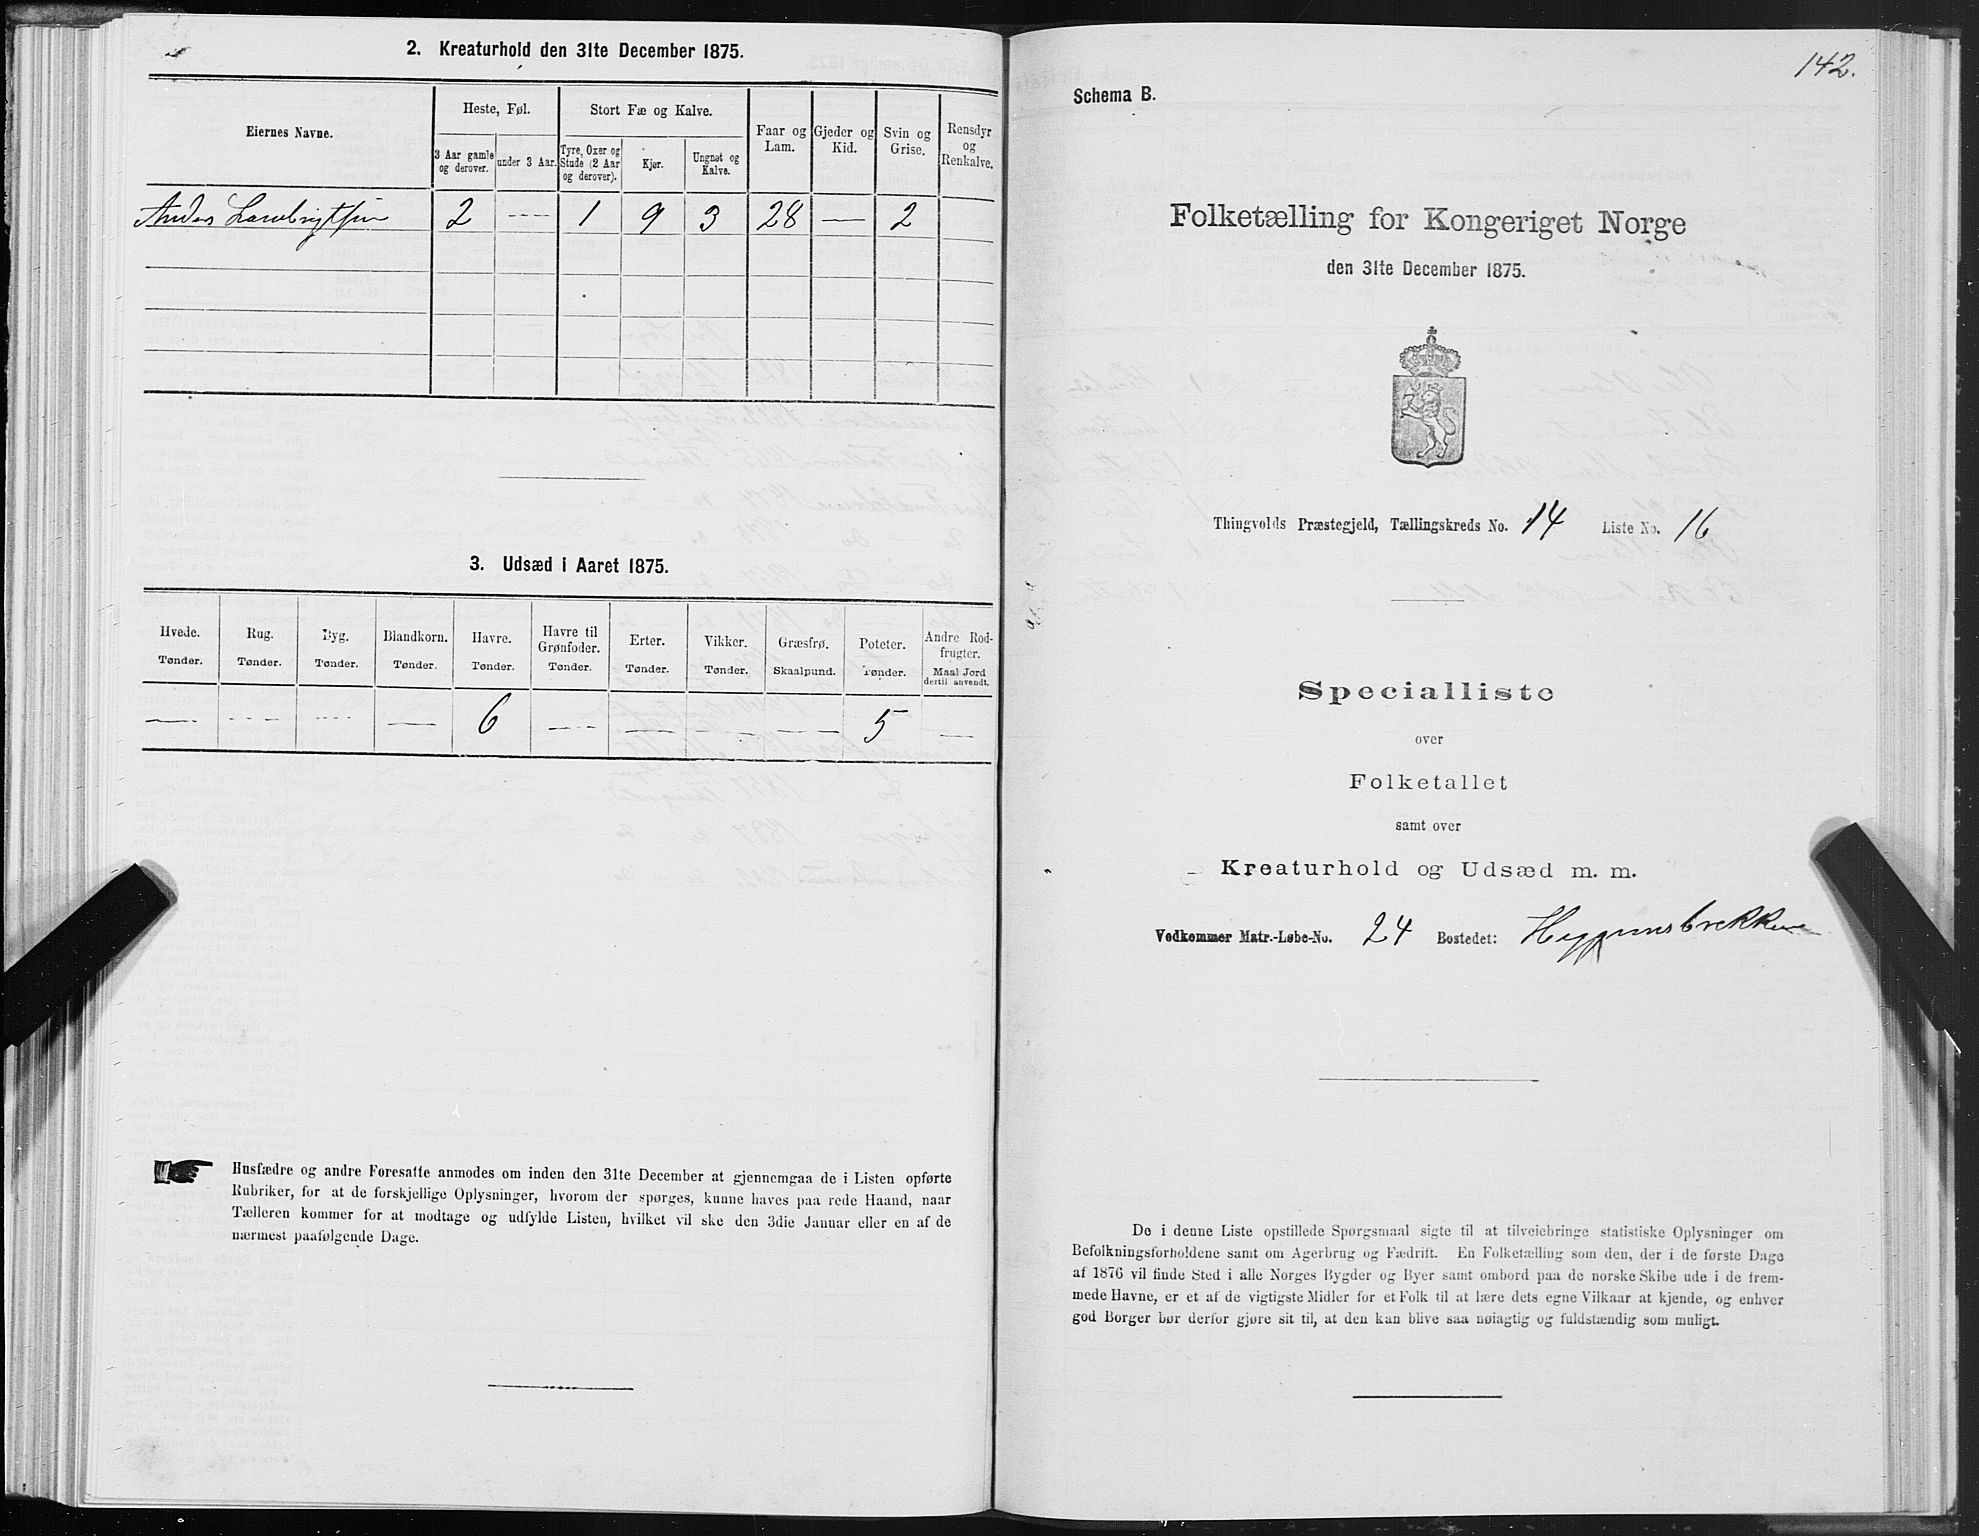 2. Kreaturhold den 31te December 1875.
Eiernes Navne.
Heste, Føl.
Stort Fæ og Kalve.
Faar og Lam.
Gjeder og Kid.
Svin og Grise.
Rensdyr og Renkalve.
3 Aar gamle og derover.
under 3 Aar.
Tyre, Oxer og Stude (2 Aar og derover).
Kjør.
Ungnøt og Kalve.
Anders Lambrigtsen 2 --- 1 9 3 28 — 2
3. Udsæd i Aaret 1875.
Hvede. Rug. Byg. Blandkorn. Havre. Havre til Grønfoder. Erter. Vikker. Græsfrø. Poteter. Andre Rodfrugter.
Tønder. Tønder. Tønder. Tønder. Tønder. Tønder. Tønder. Tønder. Skaalpund. Tønder. Maal Jord dertil anvendt.
— --- --- — 6 — — — — 5 —
Husfædre og andre Foresatte anmodes om inden den 31te December at gjennemgaa de i Listen opførte
Rubriker, for at de forskjellige Oplysninger, hvorom der spørges, kunne haves paa rede Haand, naar
Tælleren kommer for at modtage og udfylde Listen, hvilket vil ske den 3die Januar eller en af de
nærmest paafølgende Dage.
142.
Schema B.
Folketælling for Kongeriget Norge
den 31te December 1875.
Thingvolds Præstegjeld, Tællingskreds No. 14 Liste No. 16
Specialliste
over
Folketallet
samt over
Kreaturhold og Udsæd m. m.
Vedkommer Matr.-Løbe-No. 24 Bostedet:
De i denne Liste opstillede Spørgsmaal sigte til at tilveiebringe statistiske Oplysninger om
Befolkningsforholdene samt om Agerbrug og Fædrift. En Folketælling som den, der i de første Dage
af 1876 vil finde Sted i alle Norges Bygder og Byer samt ombord paa de norske Skibe ude i de frem-
mede Havne, er et af de vigtigste Midler for et Folk til at lære dets egne Vilkaar at kjende, og enhver
god Borger bør derfor gjøre sit til, at den kan blive saa nøiagtig og fuldstændig som muligt.